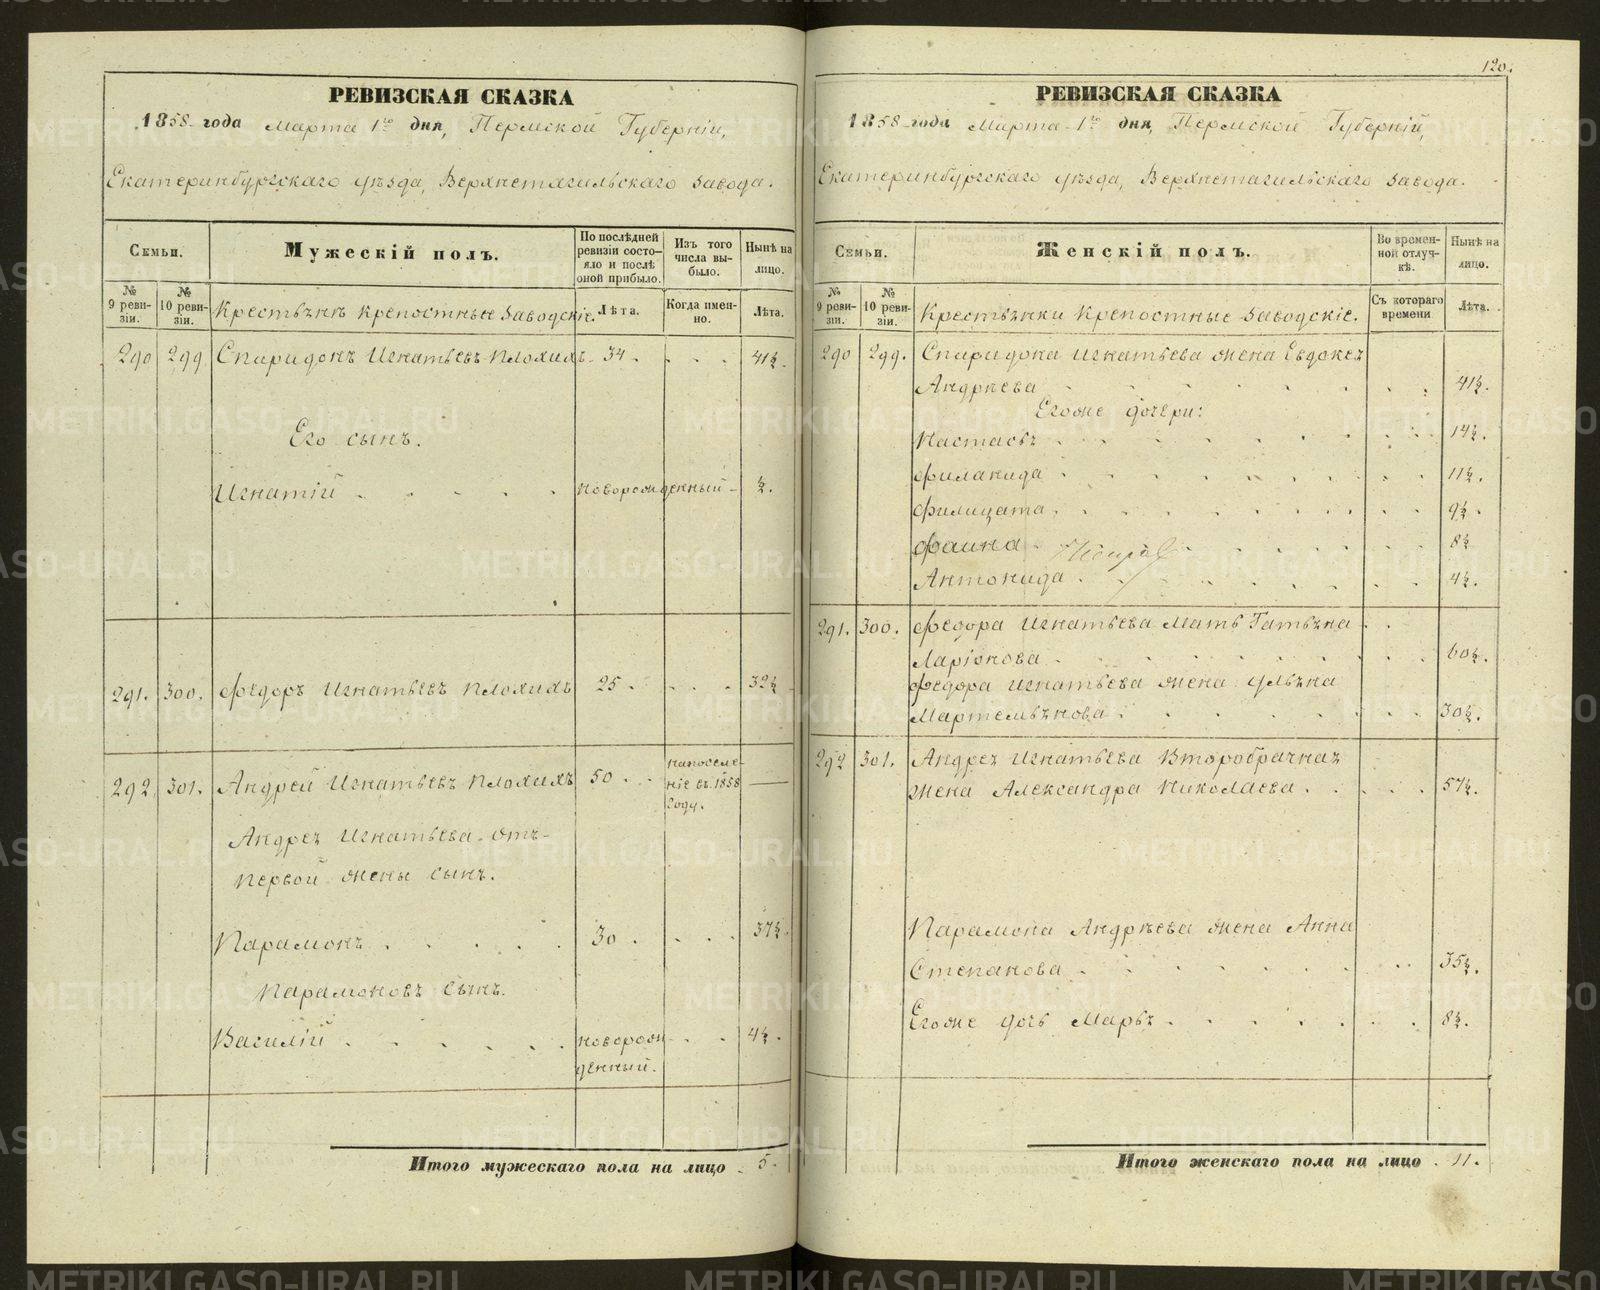 120.
РЕВИЗСКАЯ СКАЗКА
1858 года Марта 1го дня, Пермской Губерніи,
Екатеринбургскаго уѣзда, Верхнетагильскаго завода.
Семьи. Мужескій полъ. По послѣдней ревизіи состояло и послѣ оной прибыло. Изъ того числа выбыло. Нынѣ на лицо.
№ 9 ревизіи. № 10 ревизіи. Крестьянѣ крепостные заводскіе. Лѣта. Когда именно. Лѣта.
290 299 Спиридонъ Игнатьевъ Плохихъ 34. 41½.
Его сынъ.
Игнатій новорожденный ½.
291. 300. Федоръ Игнатьевъ Плохихъ 25. 32½
292 301. Андрей Игнатьевъ Плохихъ 50. на поселеніе въ 1858 году. —
Андрея Игнатьева отъ
первой жены сынъ.
Парамонъ 30. 37½.
Парамоновъ сынъ.
Василій новорожденный. 4½.
Итого мужескаго пола на лицо 5.
РЕВИЗСКАЯ СКАЗКА
1858 года Марта 1го дня, Пермской Губерніи,
Екатеринбургскаго уѣзда, Верхнетагильскаго завода.
Семьи. Женскій полъ. Во временной отлучкѣ. Нынѣ на лицо.
№ 9 ревизіи. № 10 ревизіи. Крестьянки крепостные заводскіе. Съ котораго времени Лѣта.
290 299. Спиридона Игнатьева жена Евдокея
Андрѣева 41½.
Егоже дочери:
Настасья 14½.
Филанида 11½.
Филицата 9½.
Фаина 8½
Антонида 4½.
291. 300. Федора Игнатьева мать Татьяна
Ларіонова 60½.
Федора Игнатьева жена Ульяна
Мартемьянова 30½.
292 301. Андрея Игнатьева Второбрачная
жена Александра Николаева. 57½.
Парамона Андрѣева жена Анна
Степанова 35½.
Егоже дочь Марья 8½.
Итого женскаго пола на лицо 11.
METRIKI.GASO-URAL.RU